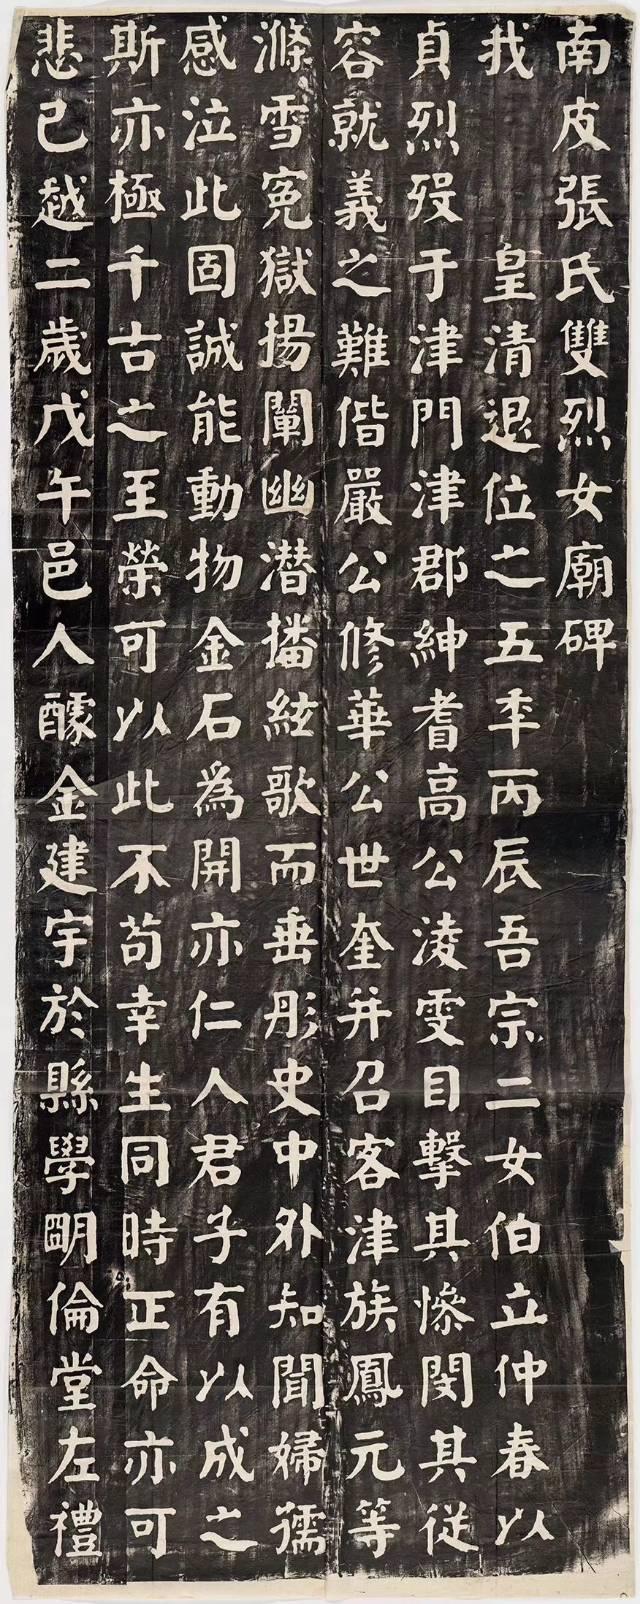 南皮張氏雙烈女廟碑
我 皇清退位之五年丙辰吾宗二女伯立仲春以
貞烈歿于津門津郡紳耆高公淩雯目擊其慘閔其從
容就義之難偕嚴公修華公世奎并召客津族鳳元等
滌雪寃獄揚闡幽潛播絃歌而垂彤史中外知聞婦孺
感泣此固誠能動物金石為開亦仁人君子有以成之
斯亦極千古之至榮可以此不苟幸生同時正命亦可
悲已越二歲戊午邑人醵金建宇於縣學明倫堂左禮